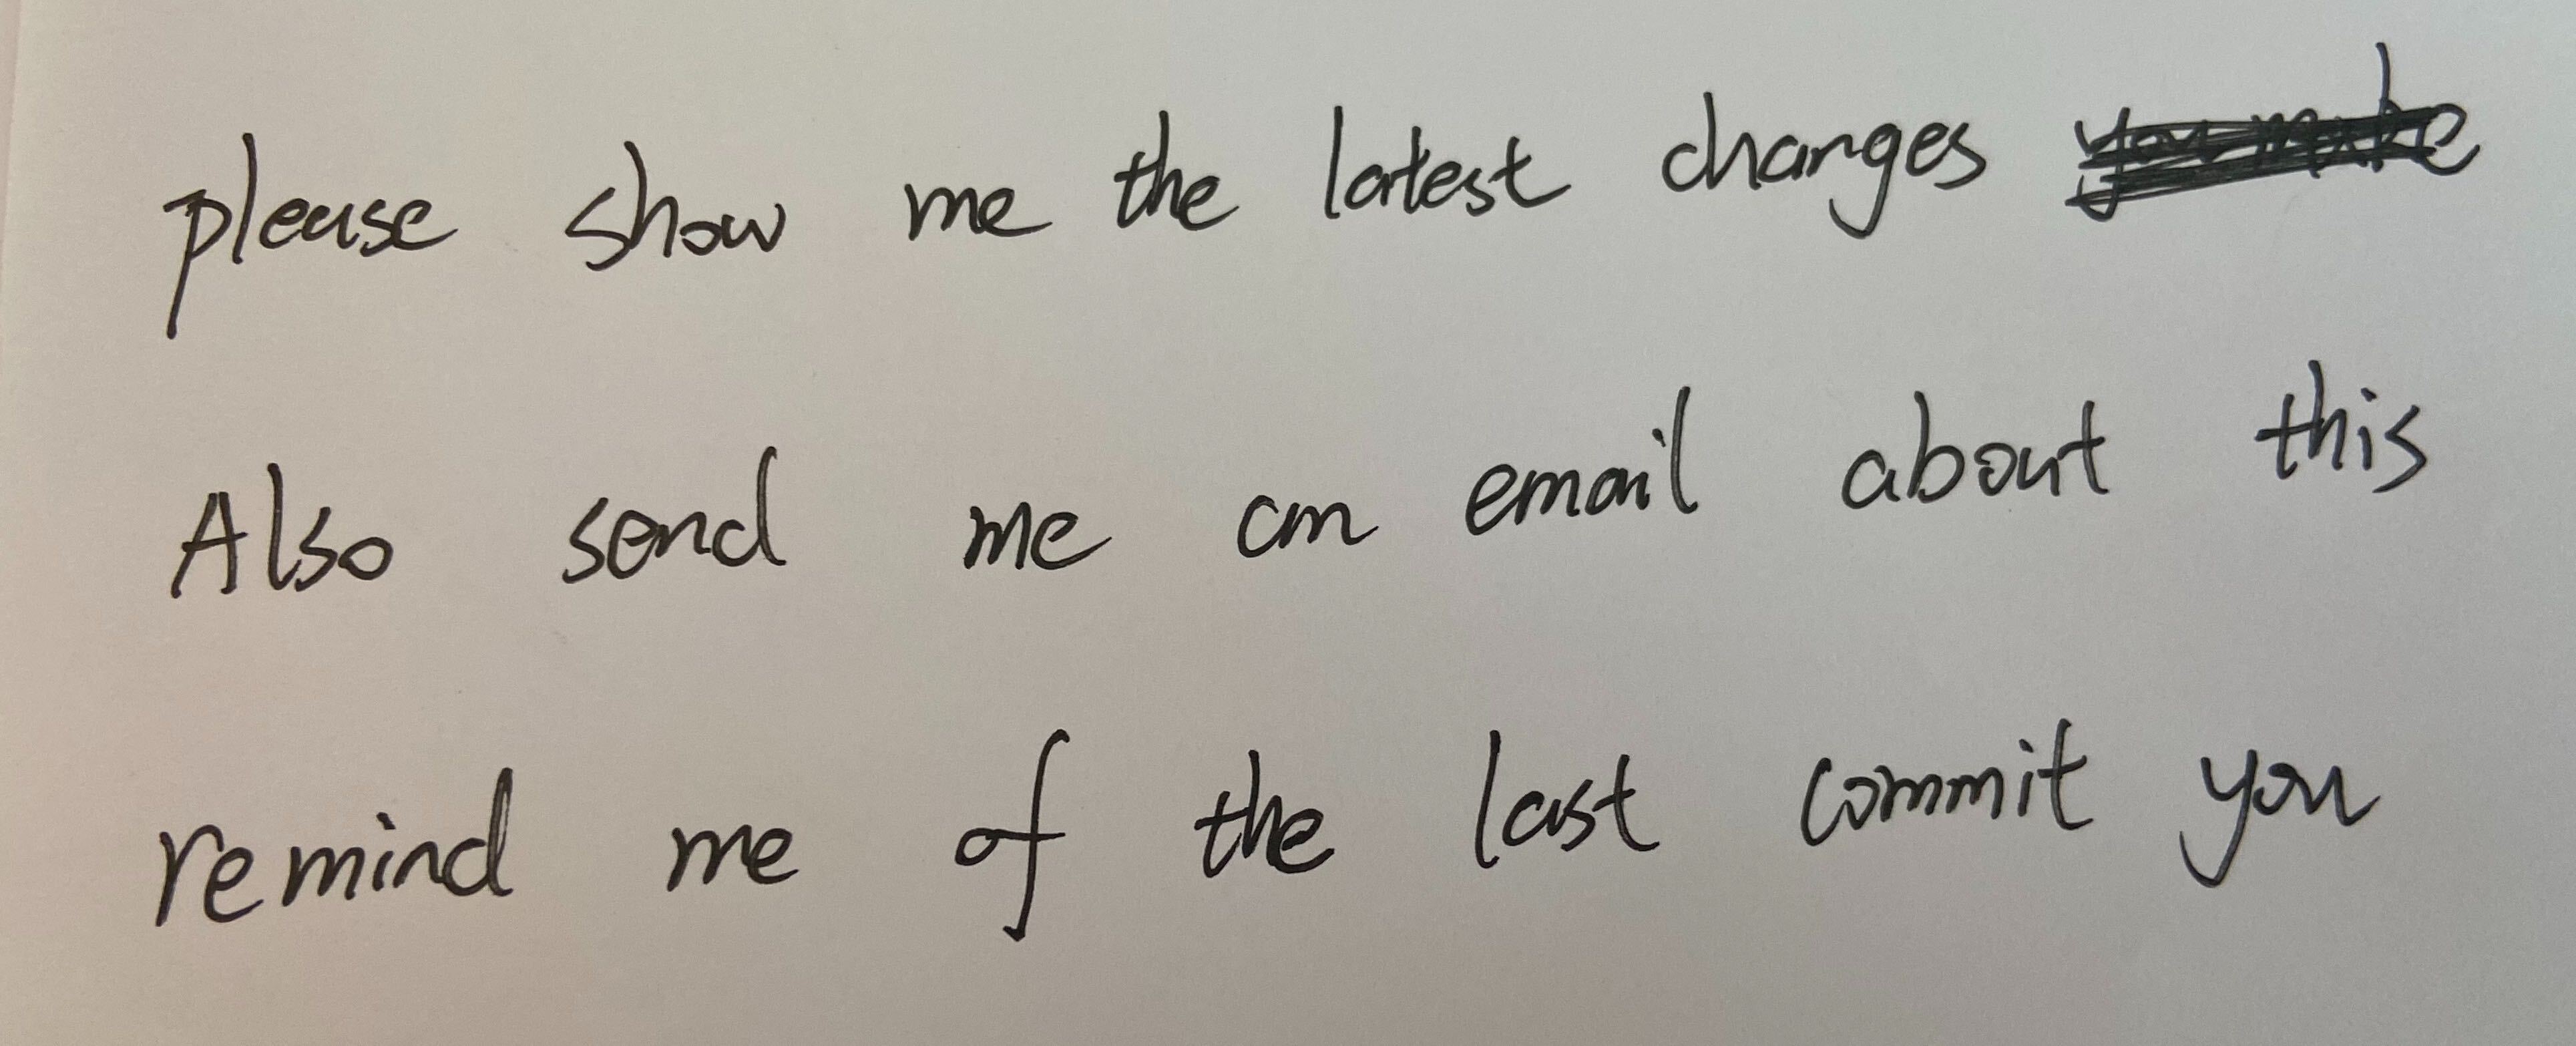 please show me the latest changes
Also send me an email about this
remind me of the last commit you